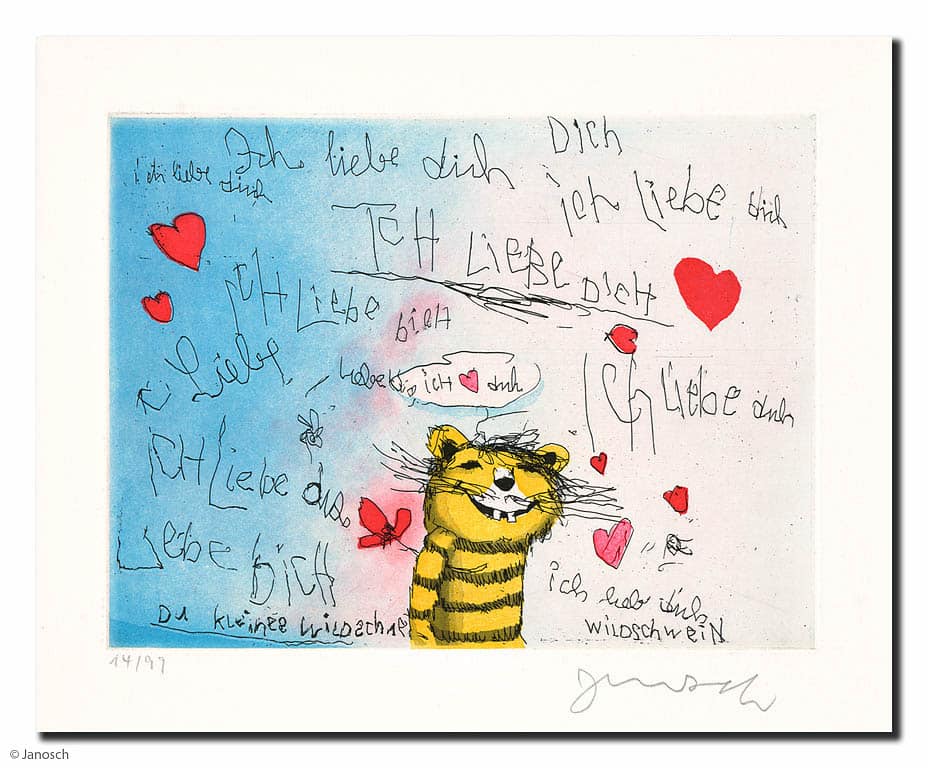 Dich
Ich liebe dich
ich liebe dich
ich liebe dich
ICH LiEBE DiCH
ICH LiEbe DiCH
Liebe
ICH dich
ICH liebe dich
ICH LiEbe dich
LiEbE DiCH
ich lieb dich
WILDSCHWEiN
DU KLEiNES WiLDSCHWE
14/99
Janosch
© Janosch